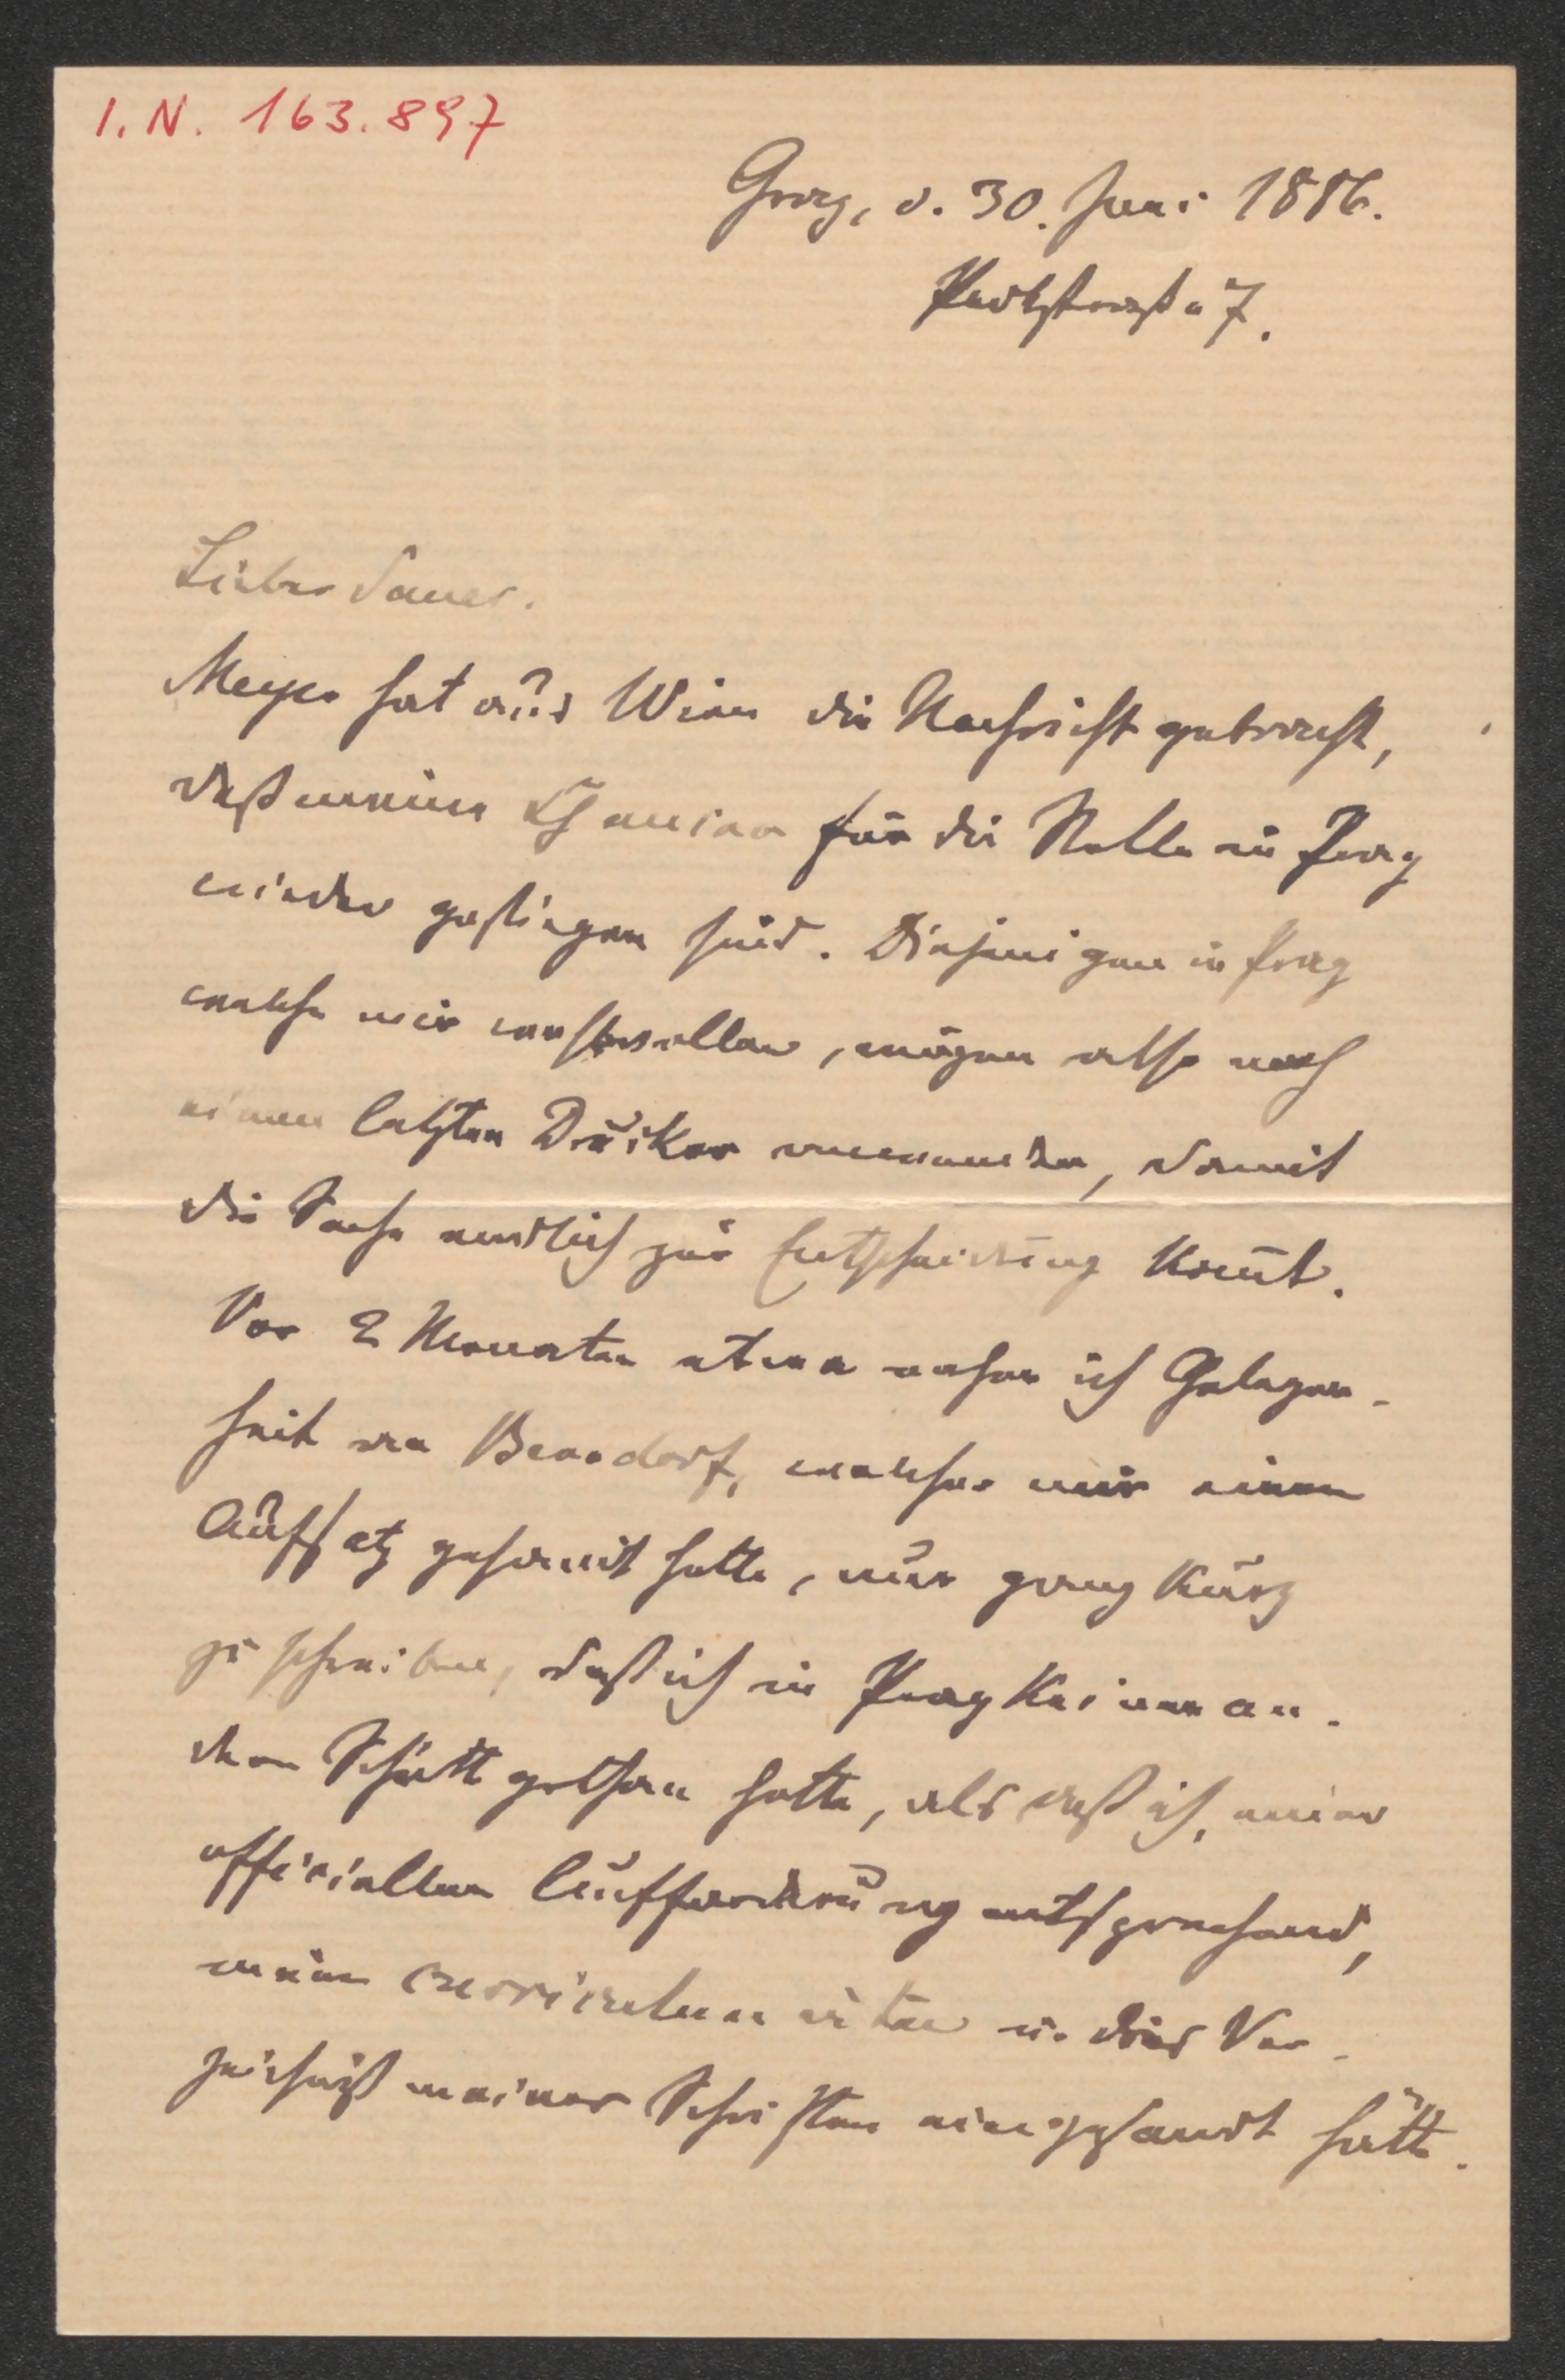 I. N. 163.897
Graz, d. 30. Juni 1886.
Lieber Sauer.
Meyer hat aus Wien die Nachricht gebracht,
daß meine Chancen für die Stelle in Prag
wieder gestiegen sind. Diejenigen in Prag
welche mir wohlwollen, mögen also noch
einen letzten Drücker anwenden, damit
die Sache endlich zur Entscheidung kom̄t.
Vor 2 Monaten etwa nahm ich Gelegen-
heit an Benndorf, welcher mir einen
Aufsatz gesandt hatte, nur ganz kurz
zu schreiben, daß ich in Prag keinen an-
dern Schritt gethan hätte, als daß ich, einer
officiellen Aufforderung entsprechend,
mein curriculum vitae u. das Ver-
zeichniß meiner Schriften eingesandt hätte.